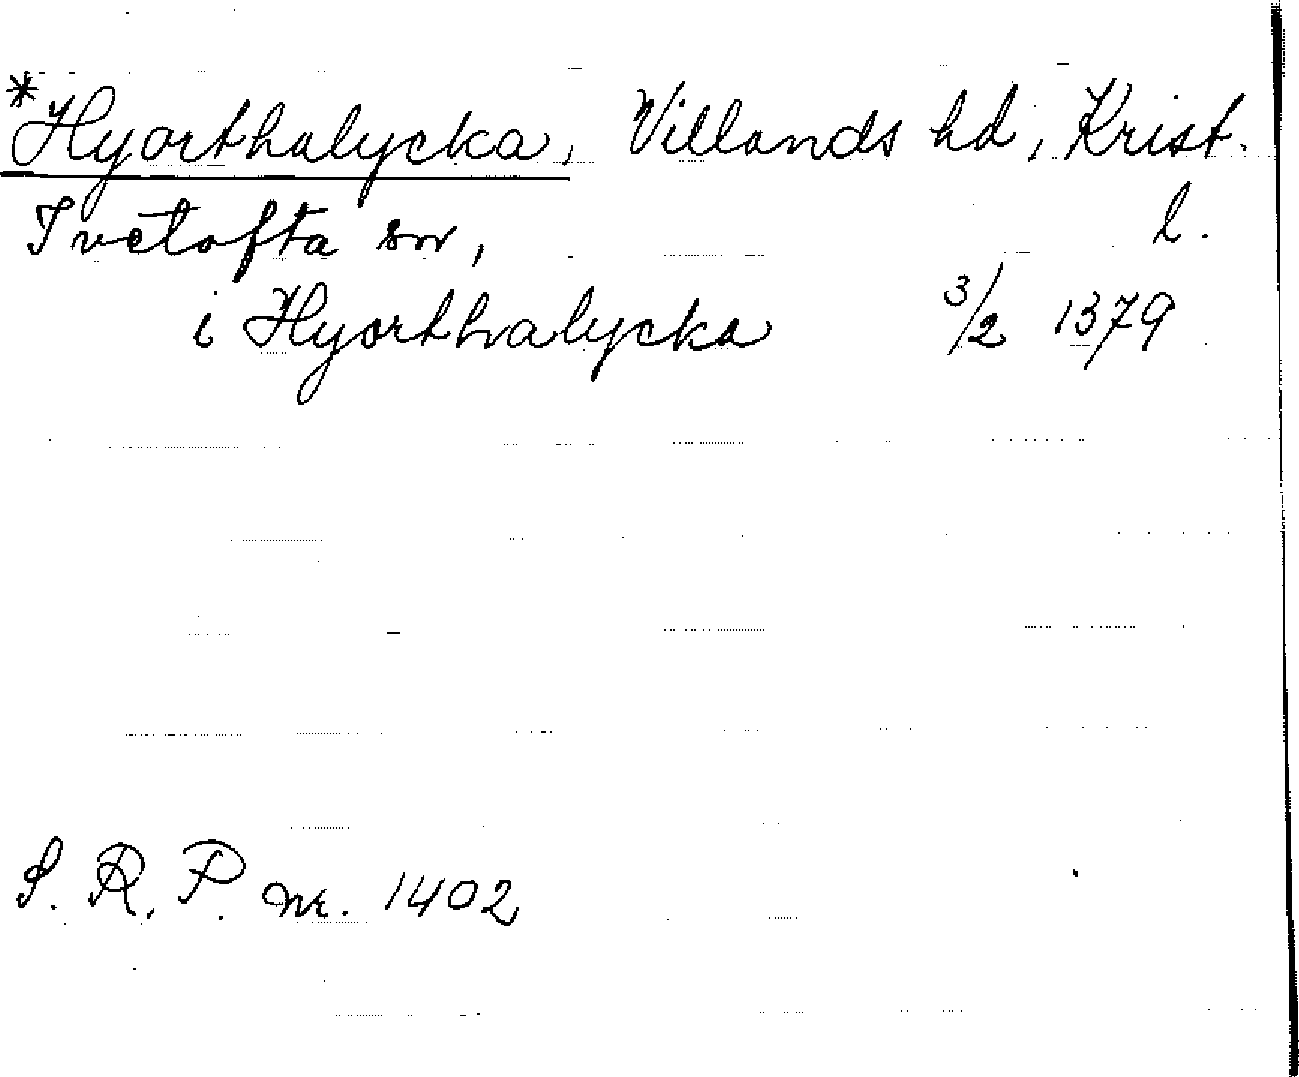 *Hyorthalycka, Villands hd, Krist.
Ivetofta sn, l.
i Hyorthalycka 3/2 1379
S. R. P. nr. 1402